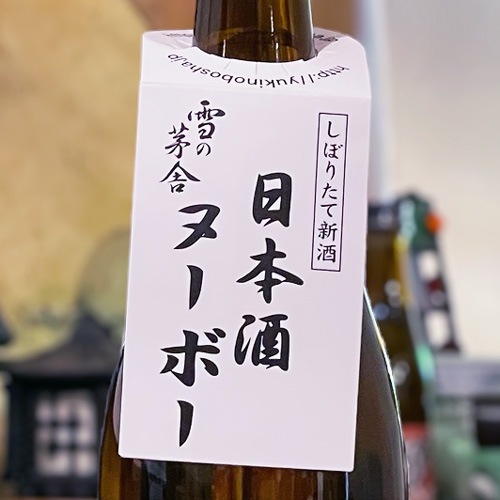 http://yukinobosha.jp
しぼりたて新酒
日本酒
ヌーボー
雪の茅舎